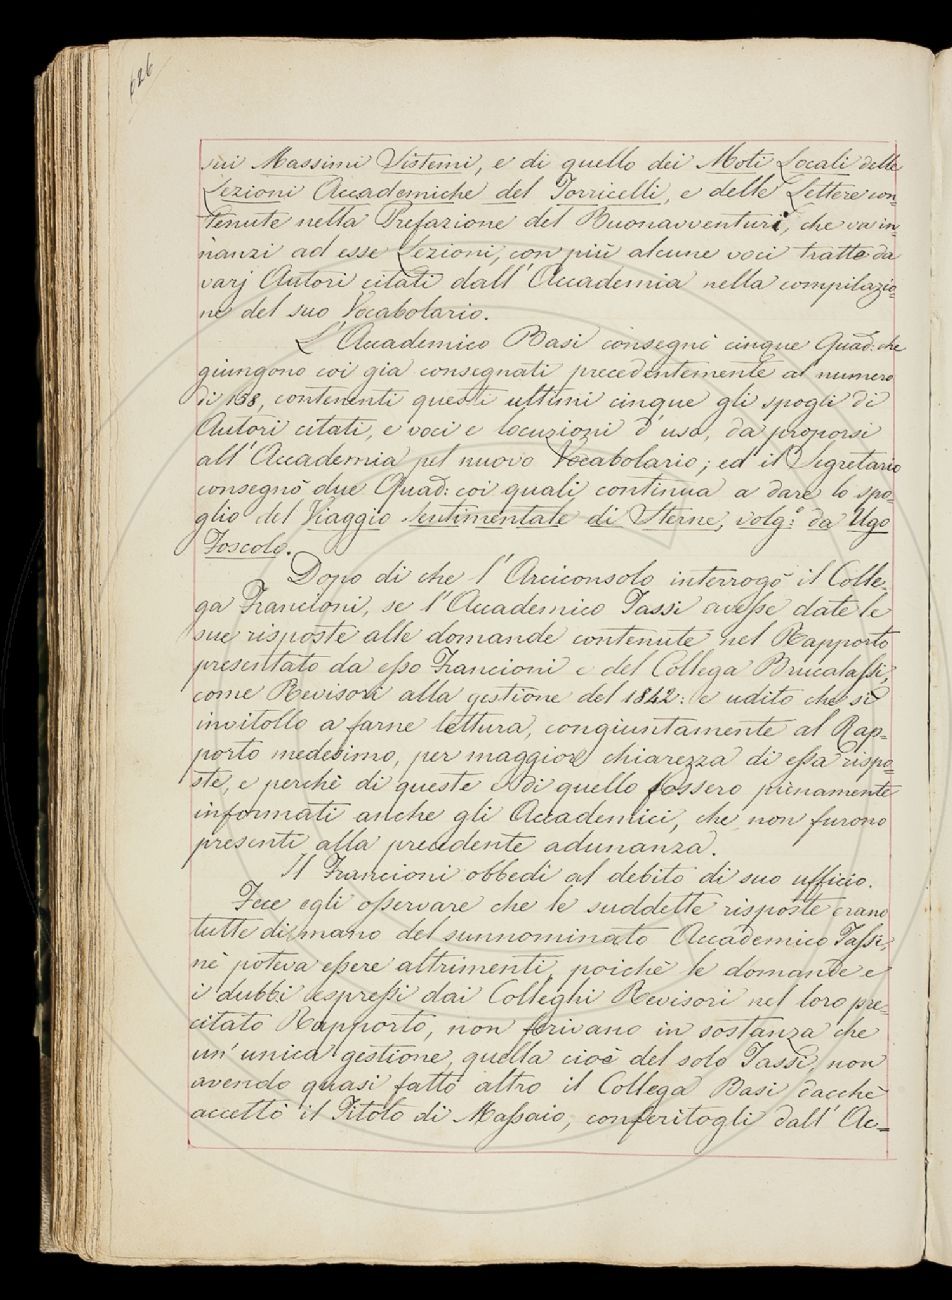 626
sui Massimi Sistemi, e di quello dei Moti Locali delle
Lezioni Accademiche del Torricelli, e delle Lettere con=
tenute nella Prefazione del Buonavventuri, che va in=
nanzi ad esse Lezioni, con più alcune voci tratte da
varj Autori citati dall'Accademia nella compilazio=
ne del suo Vocabolario.
L'Accademico Basi consegnò cinque Quad: che
giungono coi già consegnati precedentemente al numero
di 138, contenenti questi ultimi cinque gli spogli di
Autori citati, e voci e locuzioni d'uso, da proporsi
all'Accademia pel nuovo Vocabolario; ed il Segretario
consegnò due Quad: coi quali continua a dare lo spo=
glio del Viaggio Sentimentale di Sterne, volg:° da Ugo
Foscolo.
Dopo di che l'Arciconsolo interrogò il Colle=
ga Francioni, se l'Accademico Tassi avesse date le
sue risposte alle domande contenute nel Rapporto
presentato da esso Francioni e del Collega Brucalassi,
come Revisori alla gestione del 1842: e udito che sì
invitollo a farne lettura, congiuntamente al Rap=
porto medesimo, per maggiore chiarezza di essa rispo=
ste, e perchè di queste e di quello fossero pienamente
informati anche gli Accademici, che non furono
presenti alla precedente adunanza.
Il Francioni obbedì al debito di suo ufficio.
Fece egli osservare che le suddette risposte erano
tutte di mano del sunnominato Accademico Tassi,
nè poteva essere altrimenti, poichè le domande e
i dubbi espressi dai Colleghi Revisori nel loro pre=
citato Rapporto, non ferivano in sostanza che
un'unica gestione, quella cioè del solo Tassi, non
avendo quasi fatto altro il Collega Basi dacchè
accettò il Titolo di Massaio, conferitogli dall'Ac=